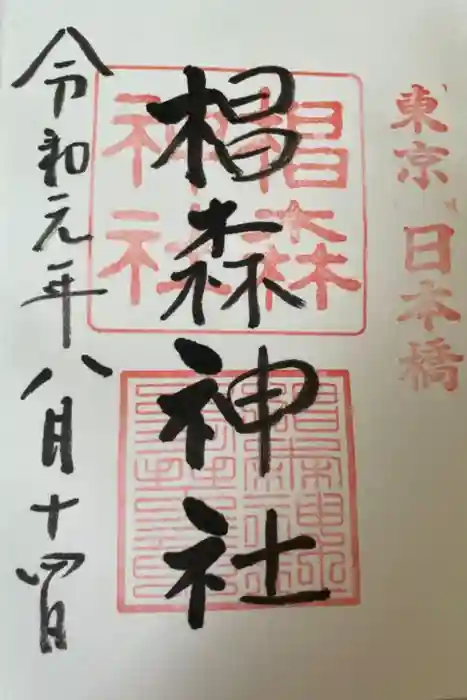 東京
日本橋
椙森神社
椙森
神社
令和元年八月十四日